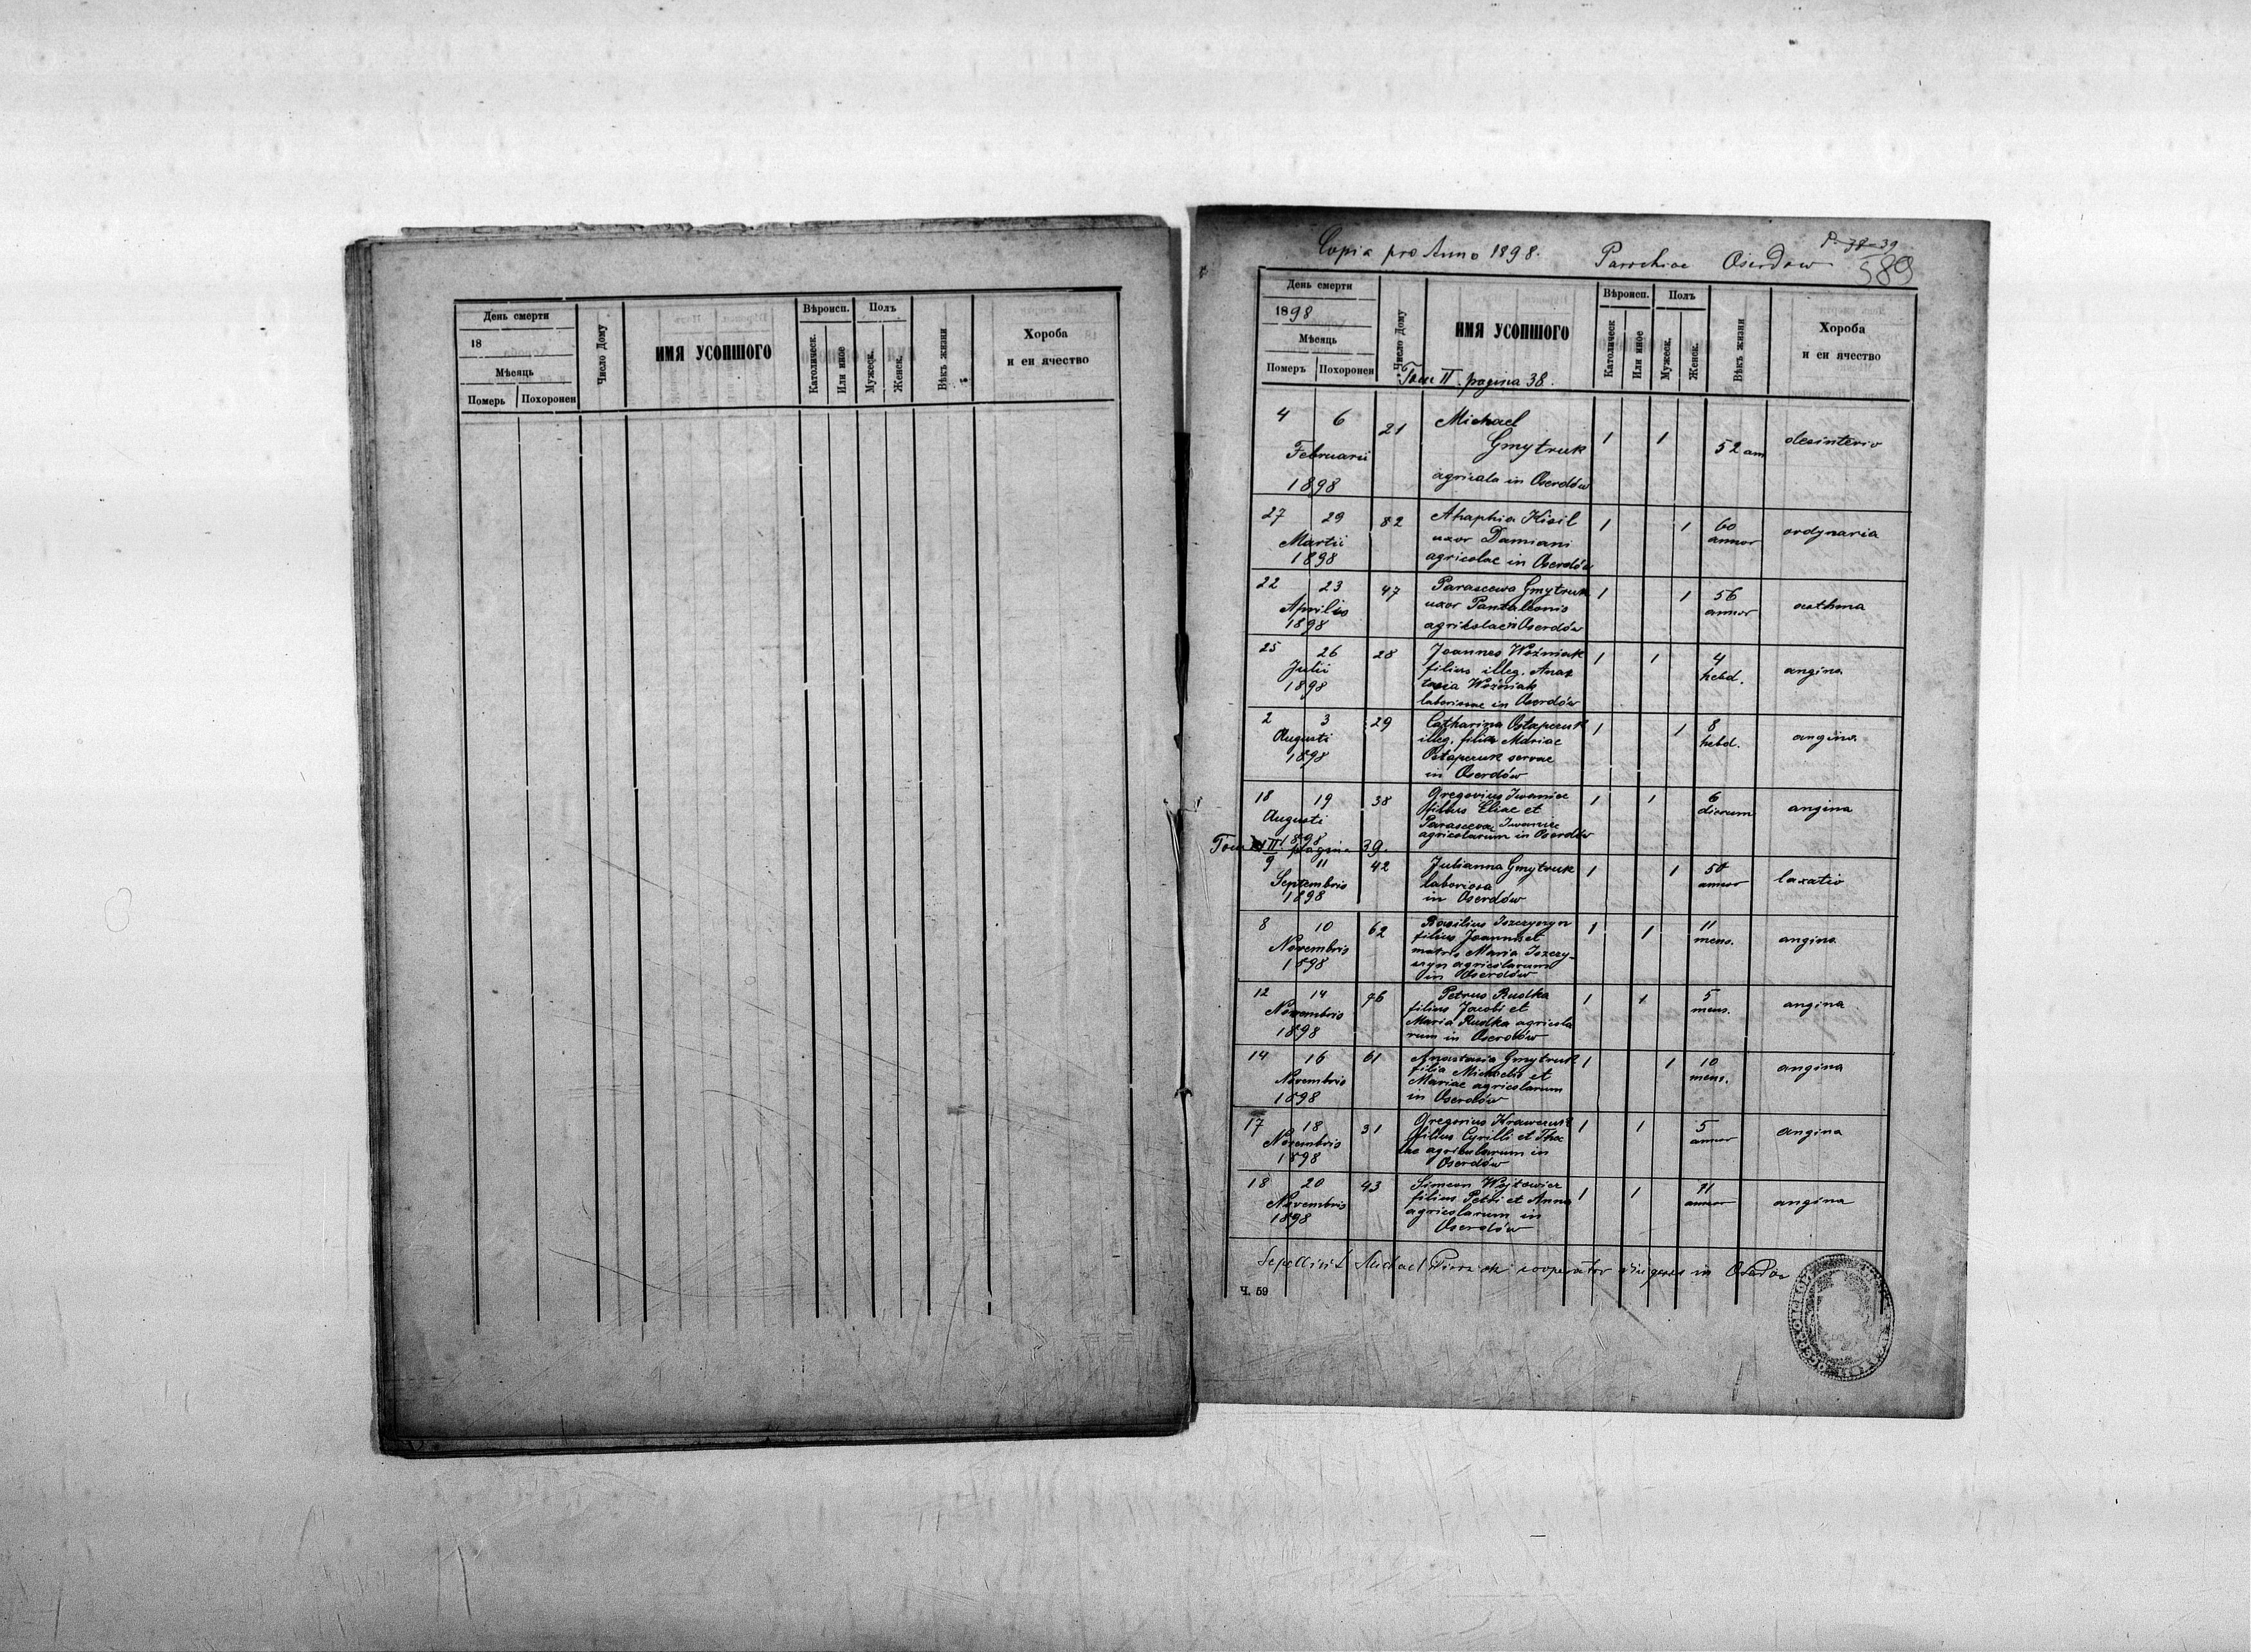 День смерти
18
Мѣсяць
Померъ
Похоронен
Число Дому
ИМЯ УСОПШОГО
Вѣроисп.
Католическ.
Или иное
Полъ
Мужеск.
Женск.
Вѣкъ жизни
Хороба
и еи ячество
Copia pro Anno 1898. Parochiae Oserdow
P. 38-39
589
День смерти
1898
Мѣсяць
Померъ
Похоронен
Число Дому
ИМЯ УСОПШОГО
Вѣроисп.
Католическ
Или иное
Полъ
Мужеск.
Женск.
Вѣкъ жизни
Хороба
и еи ячество
Tom II. pagina 38.
4 6 21 Michael 1 1 52 ann desinterio
Februarii Gmytruk
1898 agricola in Oserdów
27 29 82 Ahaphia Kisil 1 1 60 ordynaria
Martii uxor Damiani annor
1898 agricolae in Oserdów
22 23 47 Parascewa Gmytruk 1 1 56 asthma
Aprilis uxor Pantaleonis annor
1898 agrikolae in Oserdów
25 26 28 Joannes Woźniak 1 1 4 angina
Julii filius illeg. Anas hebd.
1898 tasia Woźniak
laboriosae in Oserdów
2 3 29 Catharina Ostapczuk 1 1 8 angina
Augusti illeg. filia Mariae hebd.
1898 Ostapczuk servae
in Oserdów
18 19 38 Gregorius Iwaniec 1 1 6 angina
Augusti filius Eliae et dierum
1898 Parascevae Iwaniec
agricolarum in Oserdów
Tom II pagina 39.
9 11 42 Julianna Gmytruk 1 1 50 laxatio
Septembris laboriosa annor
1898 in Oserdów
8 10 62 Basilius Iszczyszyn 1 1 11 angina
Novembris filius Joannis et mens.
1898 matris Maria Iszczy-
szyn agricolarum
in Oserdów
12 14 76 Petrus Rudka 1 1 5 angina
Novembris filius Jacobi et mens.
1898 Maria Rudka agricola
rum in Oserdów
14 16 61 Anastasia Gmytruk 1 1 10 angina
Novembris filia Michaelis et mens.
1898 Mariae agricolarum
in Oserdów
17 18 31 Gregorius Krawczuk 1 1 5 angina
Novembris filius Cyrilli et Thec annor
1898 lae agricolarum in
Oserdów
18 20 43 Simeon Wojtowicz 1 1 11 angina
Novembris filius Petri et Anna annor
1898 agricolarum in
Oserdów
Sepellivit Michael cooperator in
Ч. 59